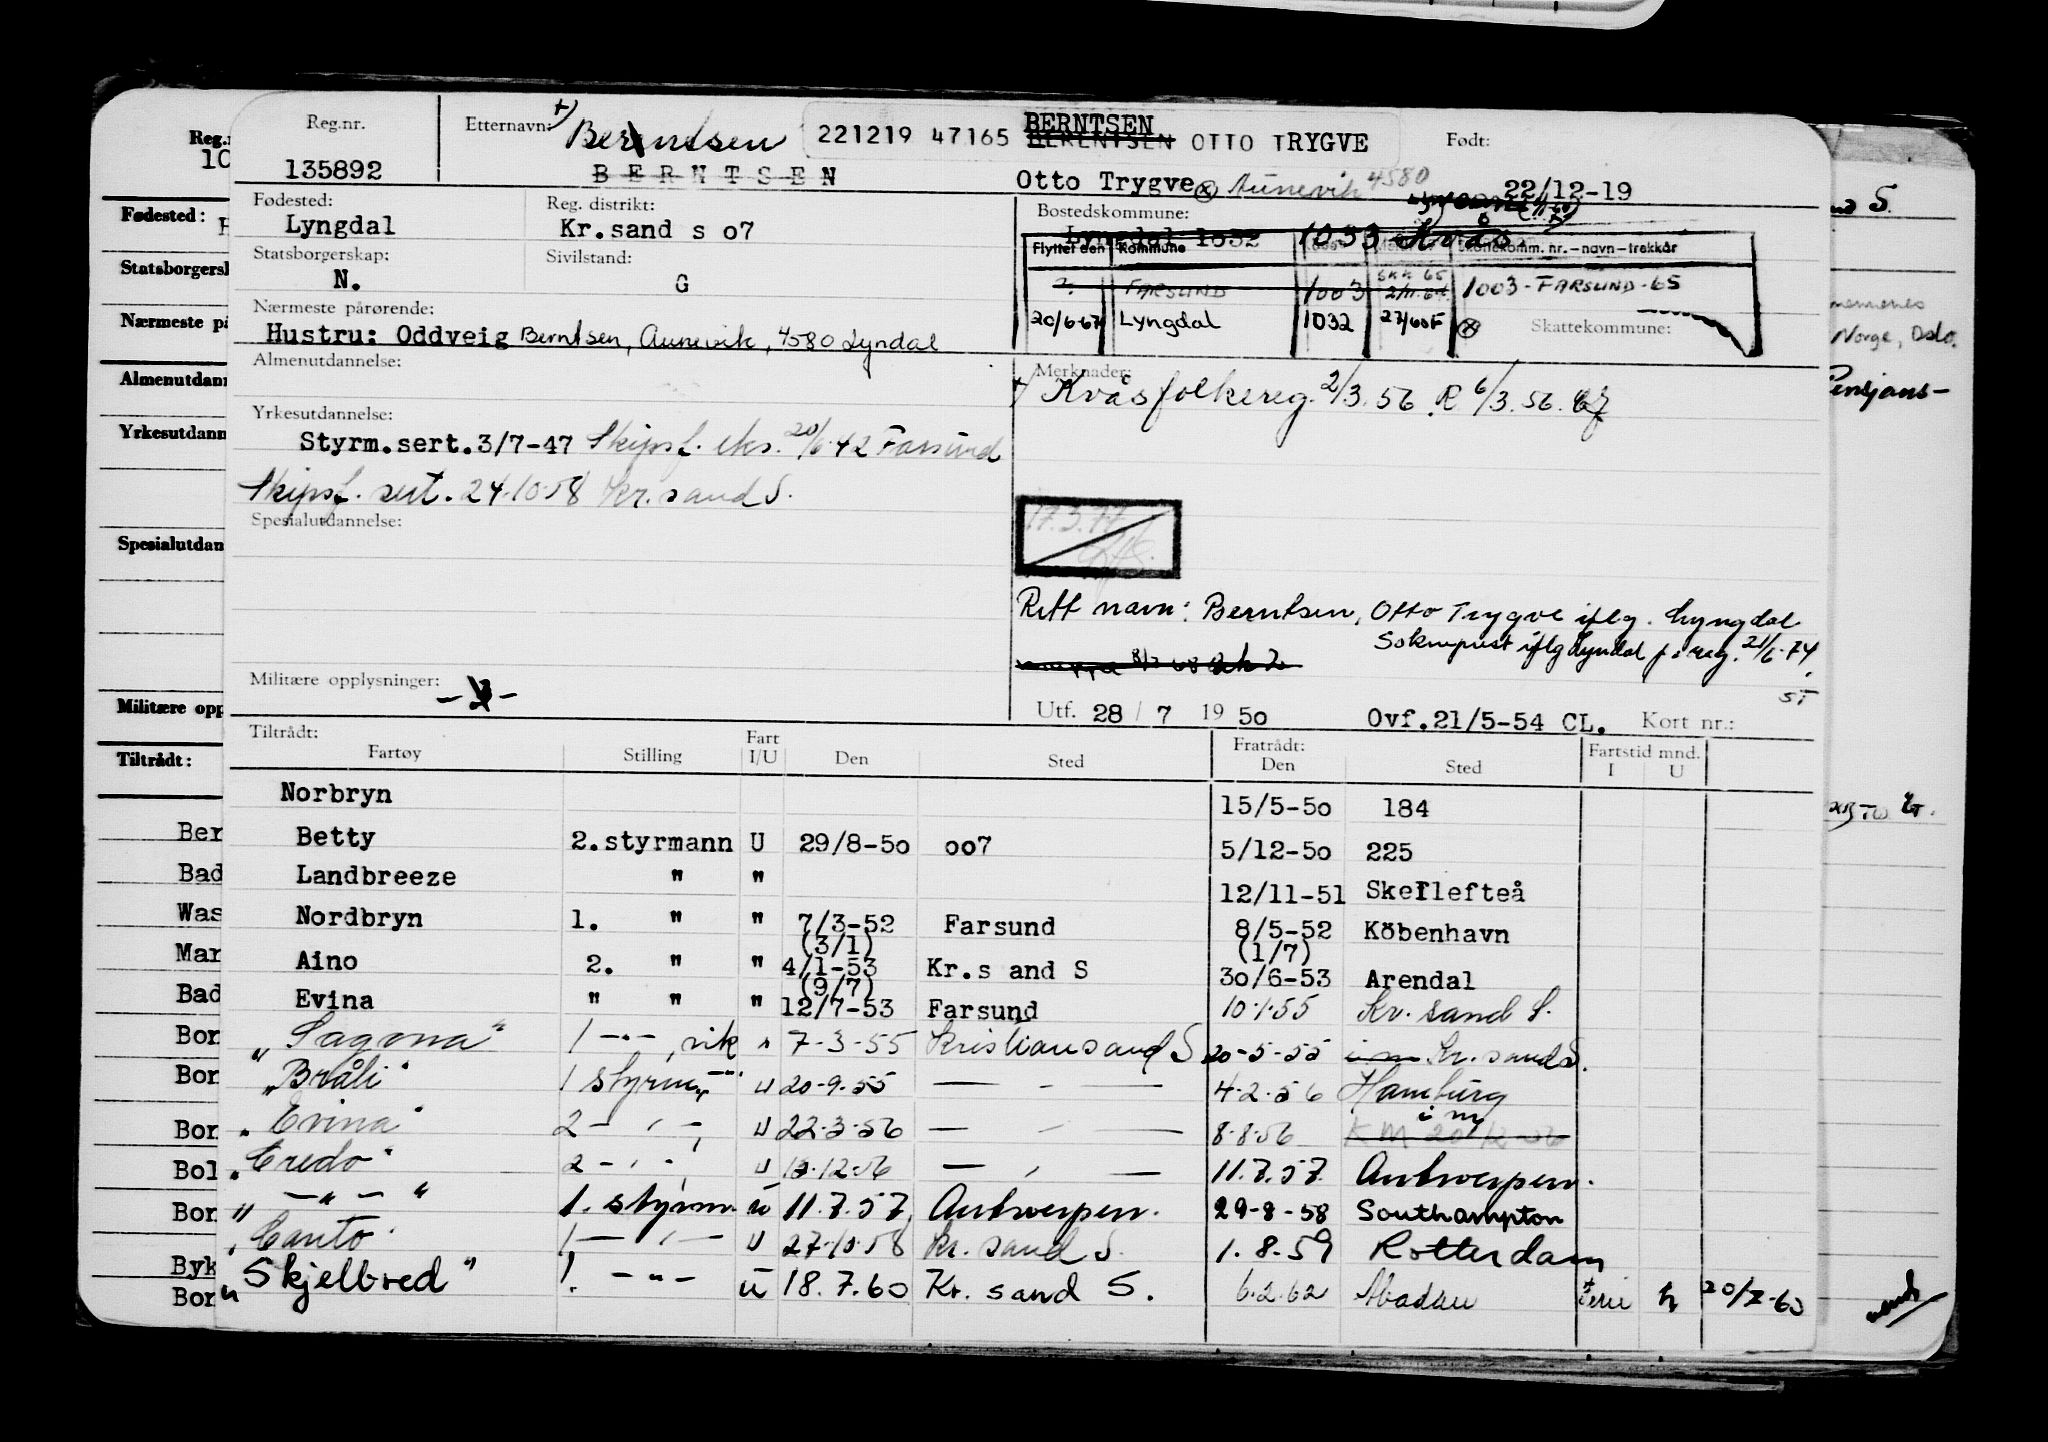 Reg.nr.
135892
Etternavn: +) Berntsen
BERNTSEN
221219 47165 BERNTSEN BERENTSEN OTTO TRYGVE
Otto Trygve ⊗ Aunevik 4580
Født:
22/12-19
Fødested:
Lyngdal
Reg. distrikt:
Kr.sand s o7
Bostedskommune:
Lyngdal 1032 1033 Kvås
Statsborgerskap:
N.
Sivilstand:
G
Flyttet den Kommune Skattekomm. nr. - navn - trekkår
?. FARSUND 1003 SKK 65 2/11-64 1003 - FARSUND - 65
20/6-67 Lyngdal 1032 27/60F ⊗ Skattekommune:
Nærmeste pårørende:
Hustru: Oddveig Berntsen, Aunevik, 4580 Lyndal
Almenutdannelse:
Merknader:
+/ Kvås folkereg. 2/3.56. R 6/3.56.
Yrkesutdannelse:
Styrm.sert.3/7-47 Skipsf. eks. 20/6-42 Farsund
Skipsf. sert. 24.10.58 Kr.sand S.
Spesialutdannelse:
17.3.77
Rett navn: Berntsen, Otto Trygve iflg. Lyngdal
Sokneprest iflg Lyndal f.reg. 21/6-74
ST
Militære opplysninger:
Utf. 28 / 7 19 50 Ovf.21/5-54 CL. Kort nr.:
Tiltrådt:
Fartøy Stilling Fart I/U Den Sted Fratrådt: Den Sted Fartstid mnd. I U
Norbryn 15/5-50 184
Betty 2.styrmann U 29/8-50 oo7 5/12-50 225
Landbreeze " " 12/11-51 Skellefteå
Nordbryn 1. " " 7/3-52 Farsund 8/5-52 Köbenhavn
(3/1) (1/7)
Aino 2. " " 4/1-53 Kr.s and S 30/6-53 Arendal
(9/7)
Evina " " " 12/7-53 Farsund 10.1.55 Kr. sand S.
"Sagona" 1 -"- vik " 7-3-55 Kristiansand S 20-5-55 i m Kr. sand S.
"Bråli" 1 styrm. U 20-9-55 — - — 4.2.56 Hamburg
"Evina" 2 - " - U 22-3-56 — - — 8.8.56 i m
"Credo" 2 - " - U 13.12.56 — " — 11.7.57. Antwerpen.
" - " - " 1. styrm. U 11.7.57. Antwerpen. 29-8-58 Southampton
"Canto" 1 — " — U 27.10.58 Kr. sand S. 1. 8.59 Rotterdam
"Skjelbred" 1. -"- U 18.7.60 Kr. sand S. 6.2.62 Abadan 20/7-60
Reg.n
10
Fødested:
H
Statsborgersk
Nærmeste på
Almenutdann
Yrkesutdann
Spesialutdan
Militære opp
Tiltrådt:
Ber
Bad
Was
Mar
Bad
Bor
Bor
Bor
Bol
Bor
Byk
Bor
S.
Norge, Oslo.
Pensjons-